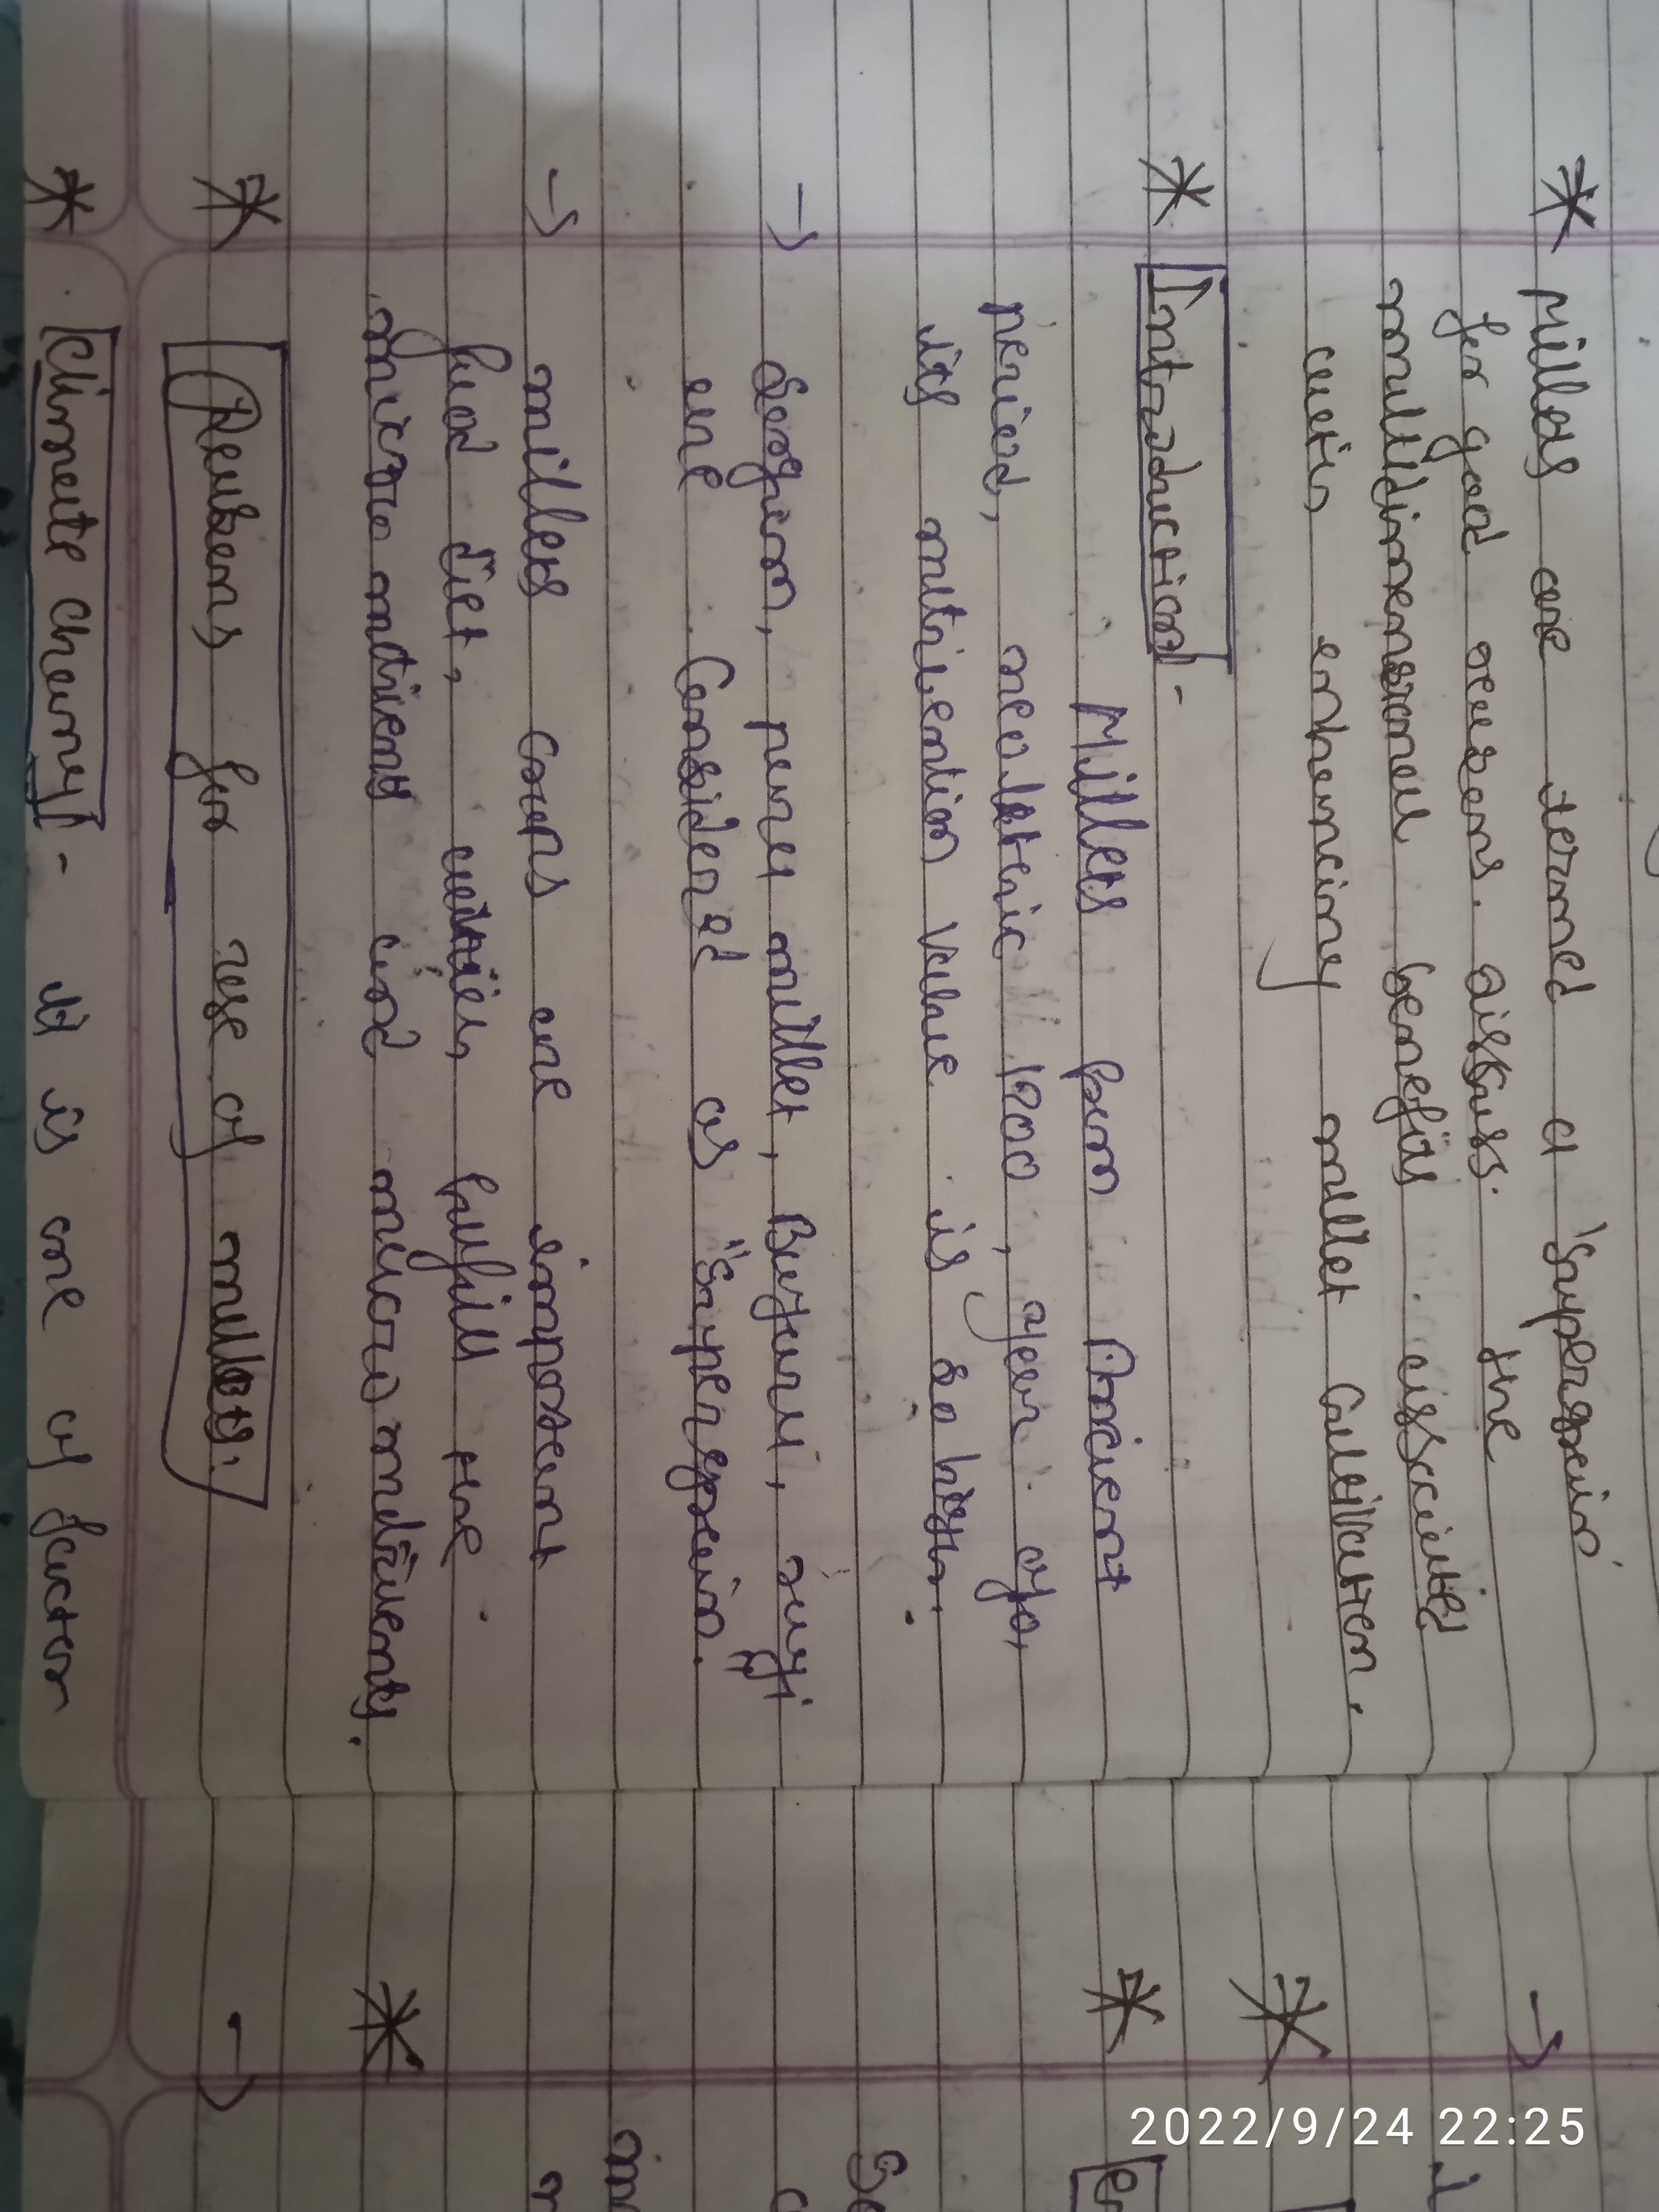 * Millets are termed a 'Supergrain'
for good reasons. discuss. the
multidimensional benefits associated
with enhancing millet Cultivation.
* Introduction -
Millets from Ancient
period, neolithic 1900, year ago,
its nutrivention value is so high.
→ Sorghum, pearl millet, Bajara, ragi
are Considered as "Supergrain.
→ millets Crops are important
food diet, fulfill the
micro nutrient and micro nutrients.
* Reasons for rise of millets.
* Climate Change - it is one of factor
→
*
*
*
→
2022/9/24 22:25